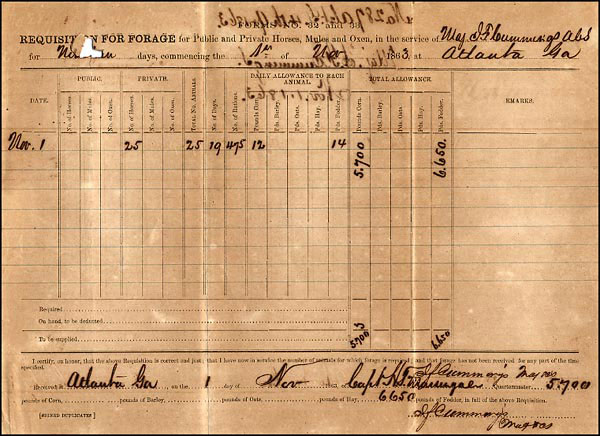 FORMS No. 32 and 33.
REQUISITION FOR FORAGE for Public and Private Horses, Mules and Oxen, in the service of Maj J F Cummings ACS
for days, commencing the 1st of Nov 1863 at Atlanta Ga
PUBLIC. PRIVATE. DAILY ALLOWANCE TO EACH ANIMAL. TOTAL ALLOWANCE.
DATE. No. of Horses No. of Mules No. of Oxen. No. of Horses No. of Mules No. of Oxen. Total No. Animals No. of Days. No. of Rations. Pounds Corn. Pds. Barley. Pds. Oats. Pds. Hay. Pds. Fodder. Pounds Corn. Pds. Barley. Pds. Oats. Pds. Hay. Pds. Fodder. REMARKS.
Nov. 1 25 25 19 475 12 14 5.700 6.650
Required
On hand, to be deducted
To be supplied 5700 6650
I certify, on honor, that the above Requisition is correct and just; that I have now in the service the number of animals for which forage is required, and that forage has not been received for any part of the time
specified.
J F Cummings Maj
Received at Atlanta Ga on the 1 day of Nov 1863, of Capt Quartermaster 5.700
pounds of Corn, pounds of Barley, pounds of Oats, pounds of Hay, 6650 pounds of Fodder, in full of the above Requisition.
[SIGNED DUPLICATES.] J F Cummings